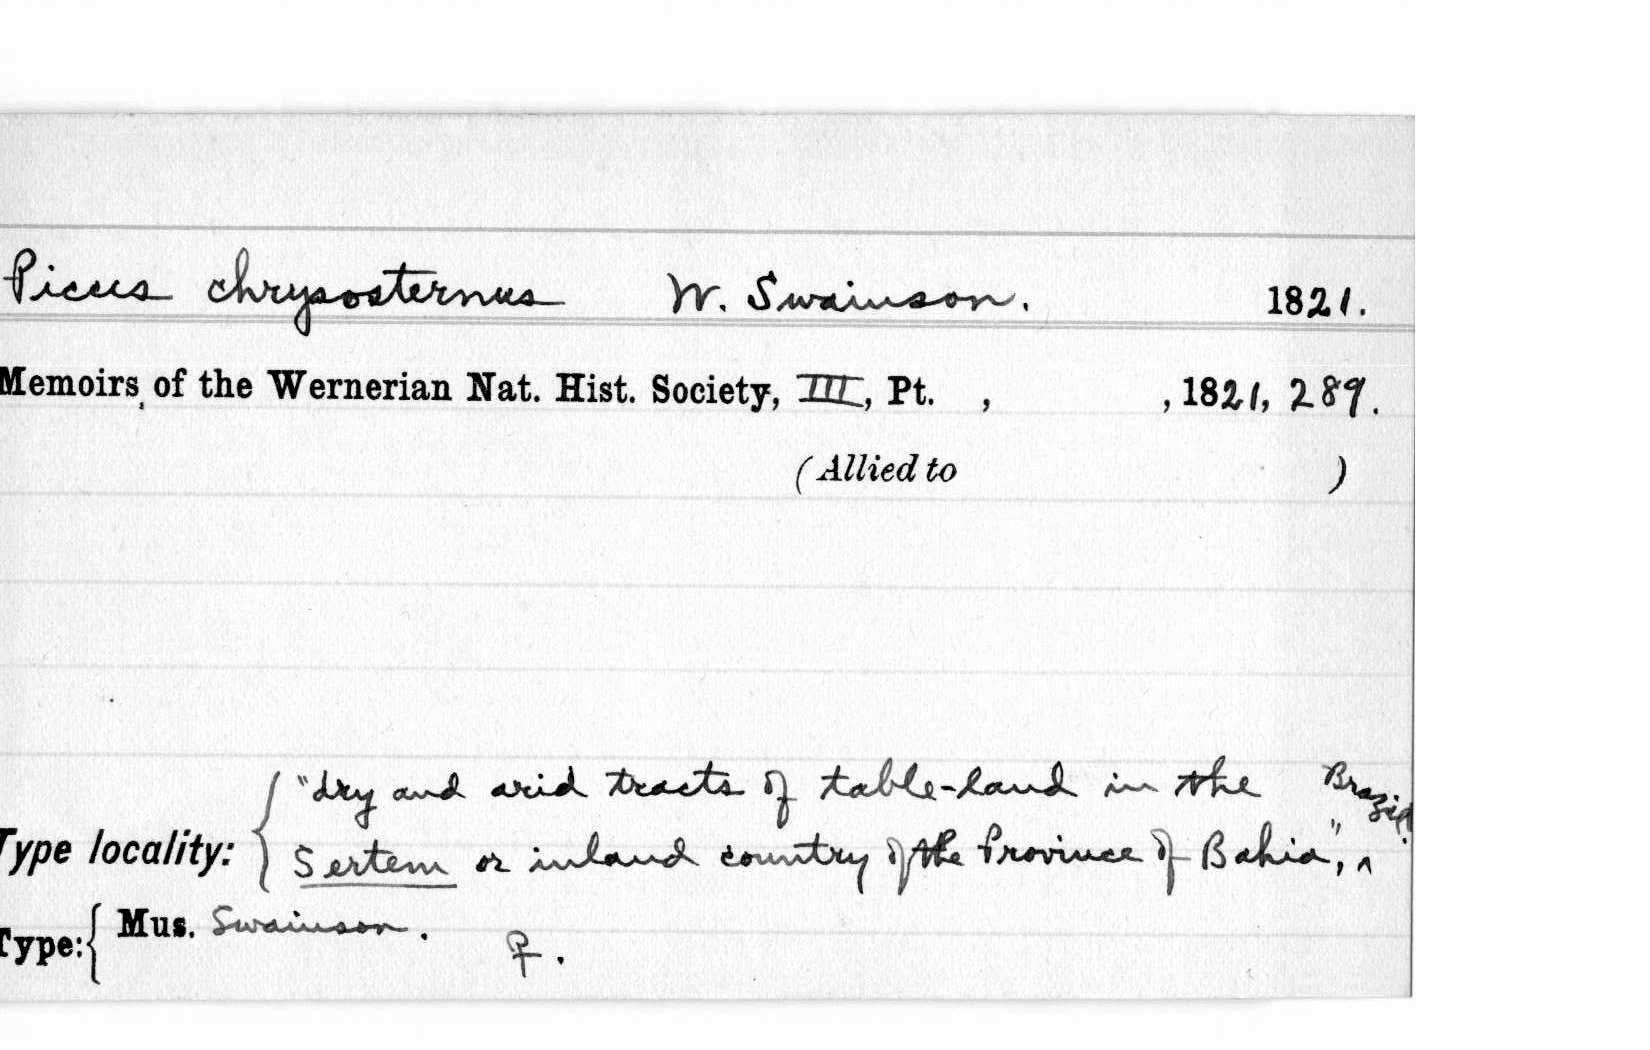 Picus chrysosternus W. Swainson. 1821.
Memoirs of the Wernerian Nat. Hist. Society, III, Pt. , , 1821, 289.
(Allied to )
"dry and arid tracts of table-land in the Brazil.
Type locality: Sertem or inland country of the Province of Bahia", ^
Type: Mus. Swainson.
♀.